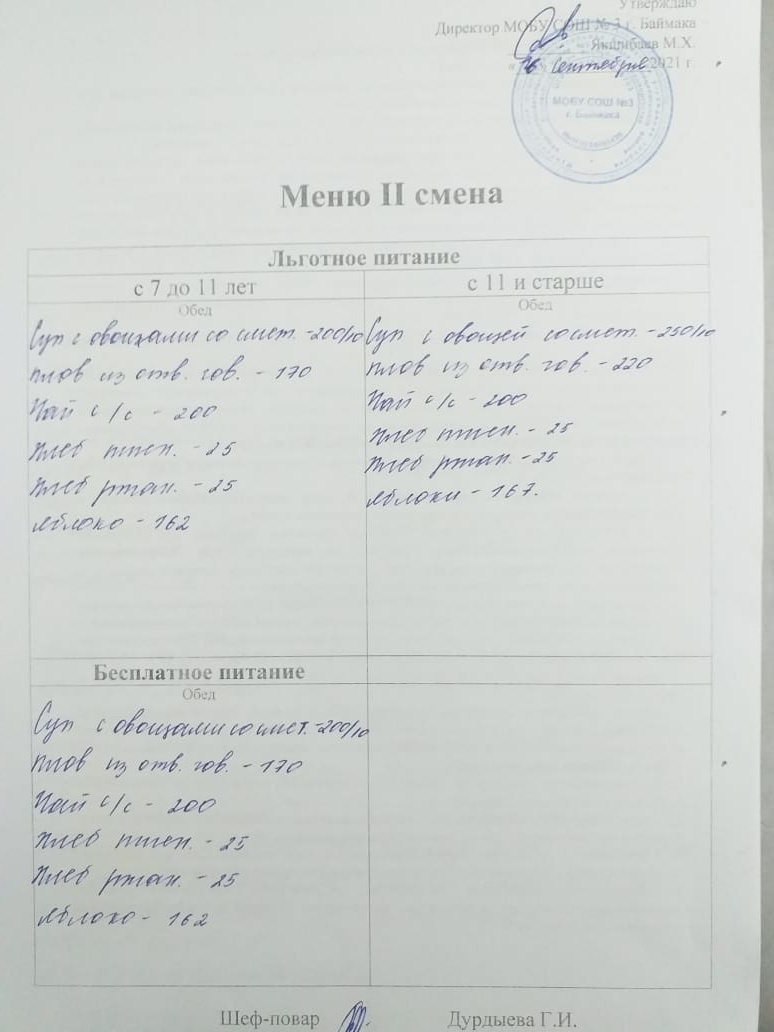 Утверждаю
Директор МОБУ СОШ № 3 г. Баймака
Якшибаев М.Х.
« 16 сентября 2021 г.
МОБУ СОШ №3
г. Баймака
Меню II смена
Льготное питание
с 7 до 11 лет
с 11 и старше
Обед
Обед
Суп с овощами со смет. -200/10
плов из отв. гов. - 170
Чай с/с - 200
Хлеб пшен. - 25
Хлеб ржан. - 25
яблоко - 162
Суп с овощей со смет. -250/10
плов из отв. гов. - 220
Чай с/с - 200
Хлеб пшен. - 25
Хлеб ржан. -25
яблоки - 167.
Бесплатное питание
Обед
Суп с овощами со смет. -200/10
плов из отв. гов. - 170
Чай с/с - 200
Хлеб пшен. - 25
Хлеб ржан. - 25
яблоко - 162
Шеф-повар Дурдыева Г.И.